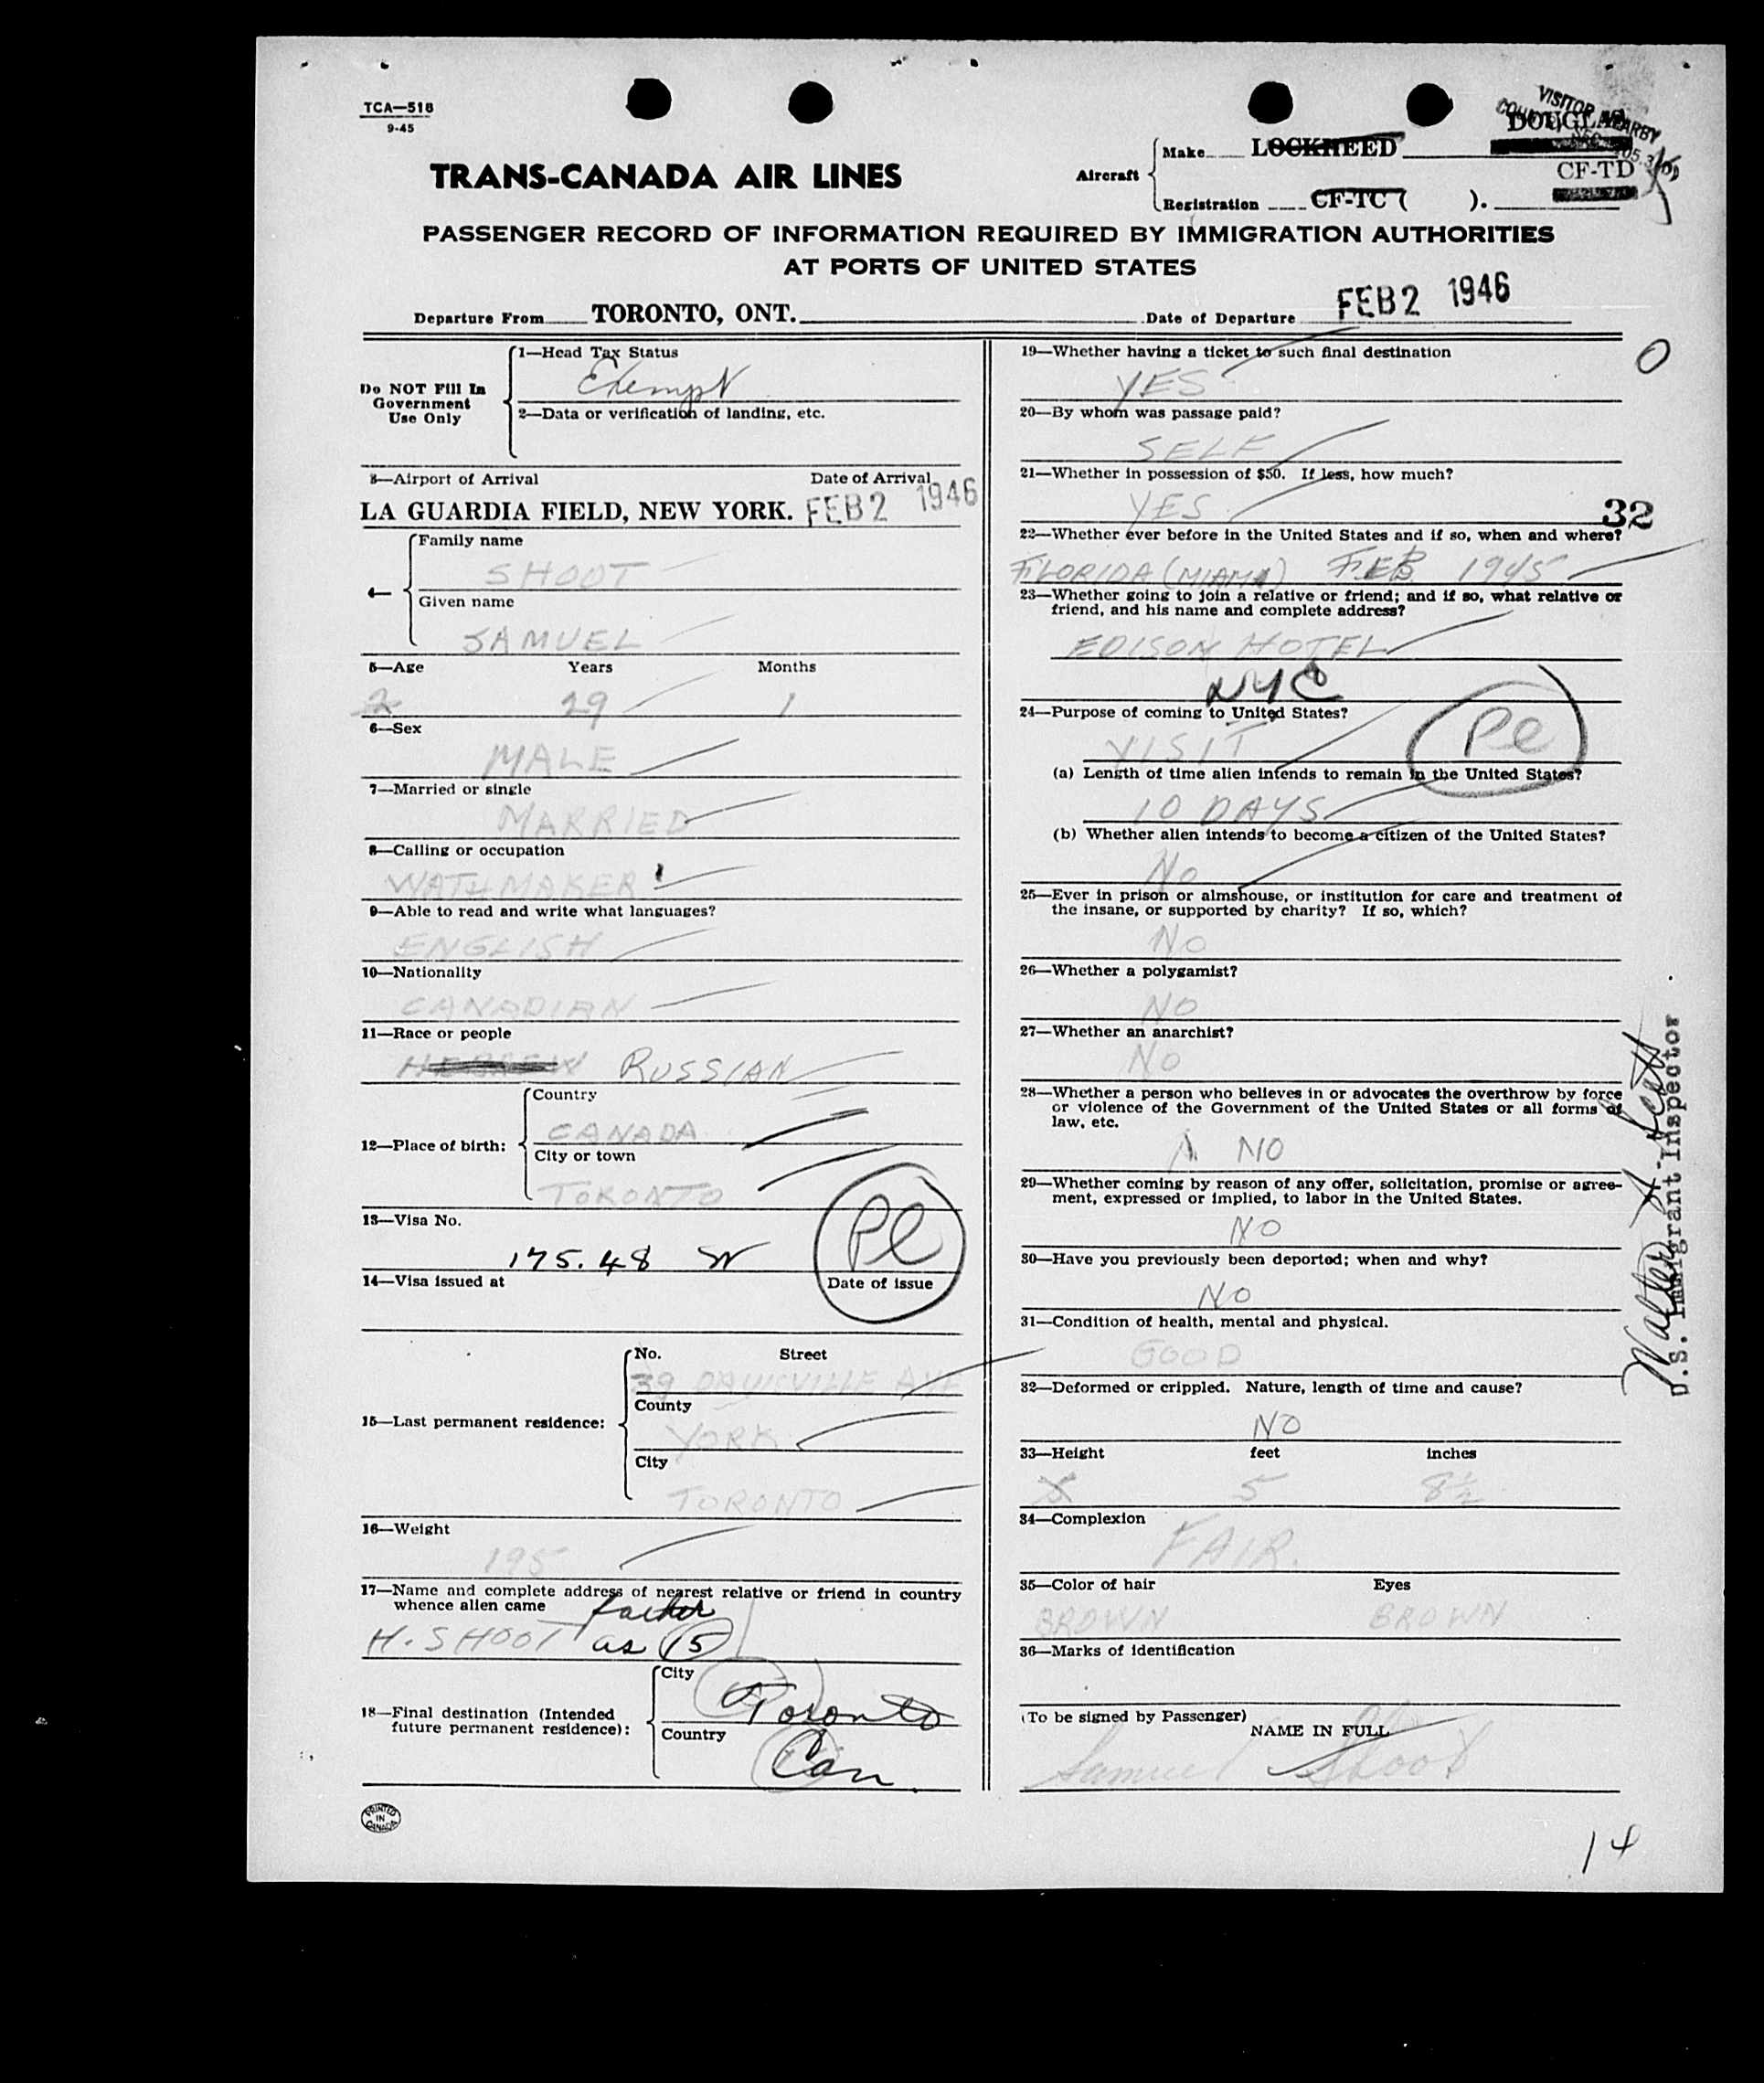 TCA—518
9-45
VISITOR NEARBY
COUNTRY
DOUGLAS
Make LOCKHEED
Aircraft
CF-TD
Registration CF-TC ( ).
TRANS-CANADA AIR LINES
PASSENGER RECORD OF INFORMATION REQUIRED BY IMMIGRATION AUTHORITIES
AT PORTS OF UNITED STATES
Departure From TORONTO, ONT.
Date of Departure FEB 2 1946
Do NOT Fill In
Government
Use Only
1—Head Tax Status
Exempt
2—Data or verification of landing, etc.
3—Airport of Arrival Date of Arrival
LA GUARDIA FIELD, NEW YORK. FEB 2 1946
4—
Family name
SHOOT
Given name
SAMUEL
5—Age Years Months
2 29 1
6—Sex
MALE
7—Married or single
MARRIED
8—Calling or occupation
WATHMAKER
9—Able to read and write what languages?
ENGLISH
10—Nationality
CANADIAN
11—Race or people
HEBREW RUSSIAN
12—Place of birth:
Country
CANADA
City or town
TORONTO
13—Visa No.
175.48 W
Pl
14—Visa issued at Date of issue
15—Last permanent residence:
No. Street
39 DAVISVILLE AVE
County
YORK
City
TORONTO
16—Weight
195
17—Name and complete address of nearest relative or friend in country
whence alien came
father
H. SHOOT as 15
18—Final destination (Intended
future permanent residence):
City
Toronto
Country
Can
PRINTED
IN
CANADA
19—Whether having a ticket to such final destination
YES
0
20—By whom was passage paid?
SELF
21—Whether in possession of $50. If less, how much?
YES
32
22—Whether ever before in the United States and if so, when and where?
FLORIDA (MIAMI) FEB 1945
23—Whether going to join a relative or friend; and if so, what relative or
friend, and his name and complete address?
EDISON HOTEL
NYC
24—Purpose of coming to United States?
VISIT
Pl
(a) Length of time alien intends to remain in the United States?
10 DAYS
(b) Whether alien intends to become a citizen of the United States?
No
25—Ever in prison or almshouse, or institution for care and treatment of
the insane, or supported by charity? If so, which?
NO
26—Whether a polygamist?
NO
27—Whether an anarchist?
NO
28—Whether a person who believes in or advocates the overthrow by force
or violence of the Government of the United States or all forms of
law, etc.
NO
29—Whether coming by reason of any offer, solicitation, promise or agree-
ment, expressed or implied, to labor in the United States.
NO
30—Have you previously been deported; when and why?
NO
31—Condition of health, mental and physical.
GOOD
32—Deformed or crippled. Nature, length of time and cause?
NO
33—Height feet inches
5 8½
34—Complexion
FAIR.
35—Color of hair Eyes
BROWN BROWN
36—Marks of identification
(To be signed by Passenger)
NAME IN FULL
Samuel Shoot
Walter
U.S. Immigrant Inspector
14